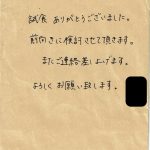 試食 ありがとうございました。
前向きに検討させて頂きます。
またご連絡差し上げます。
よろしくお願い致します。